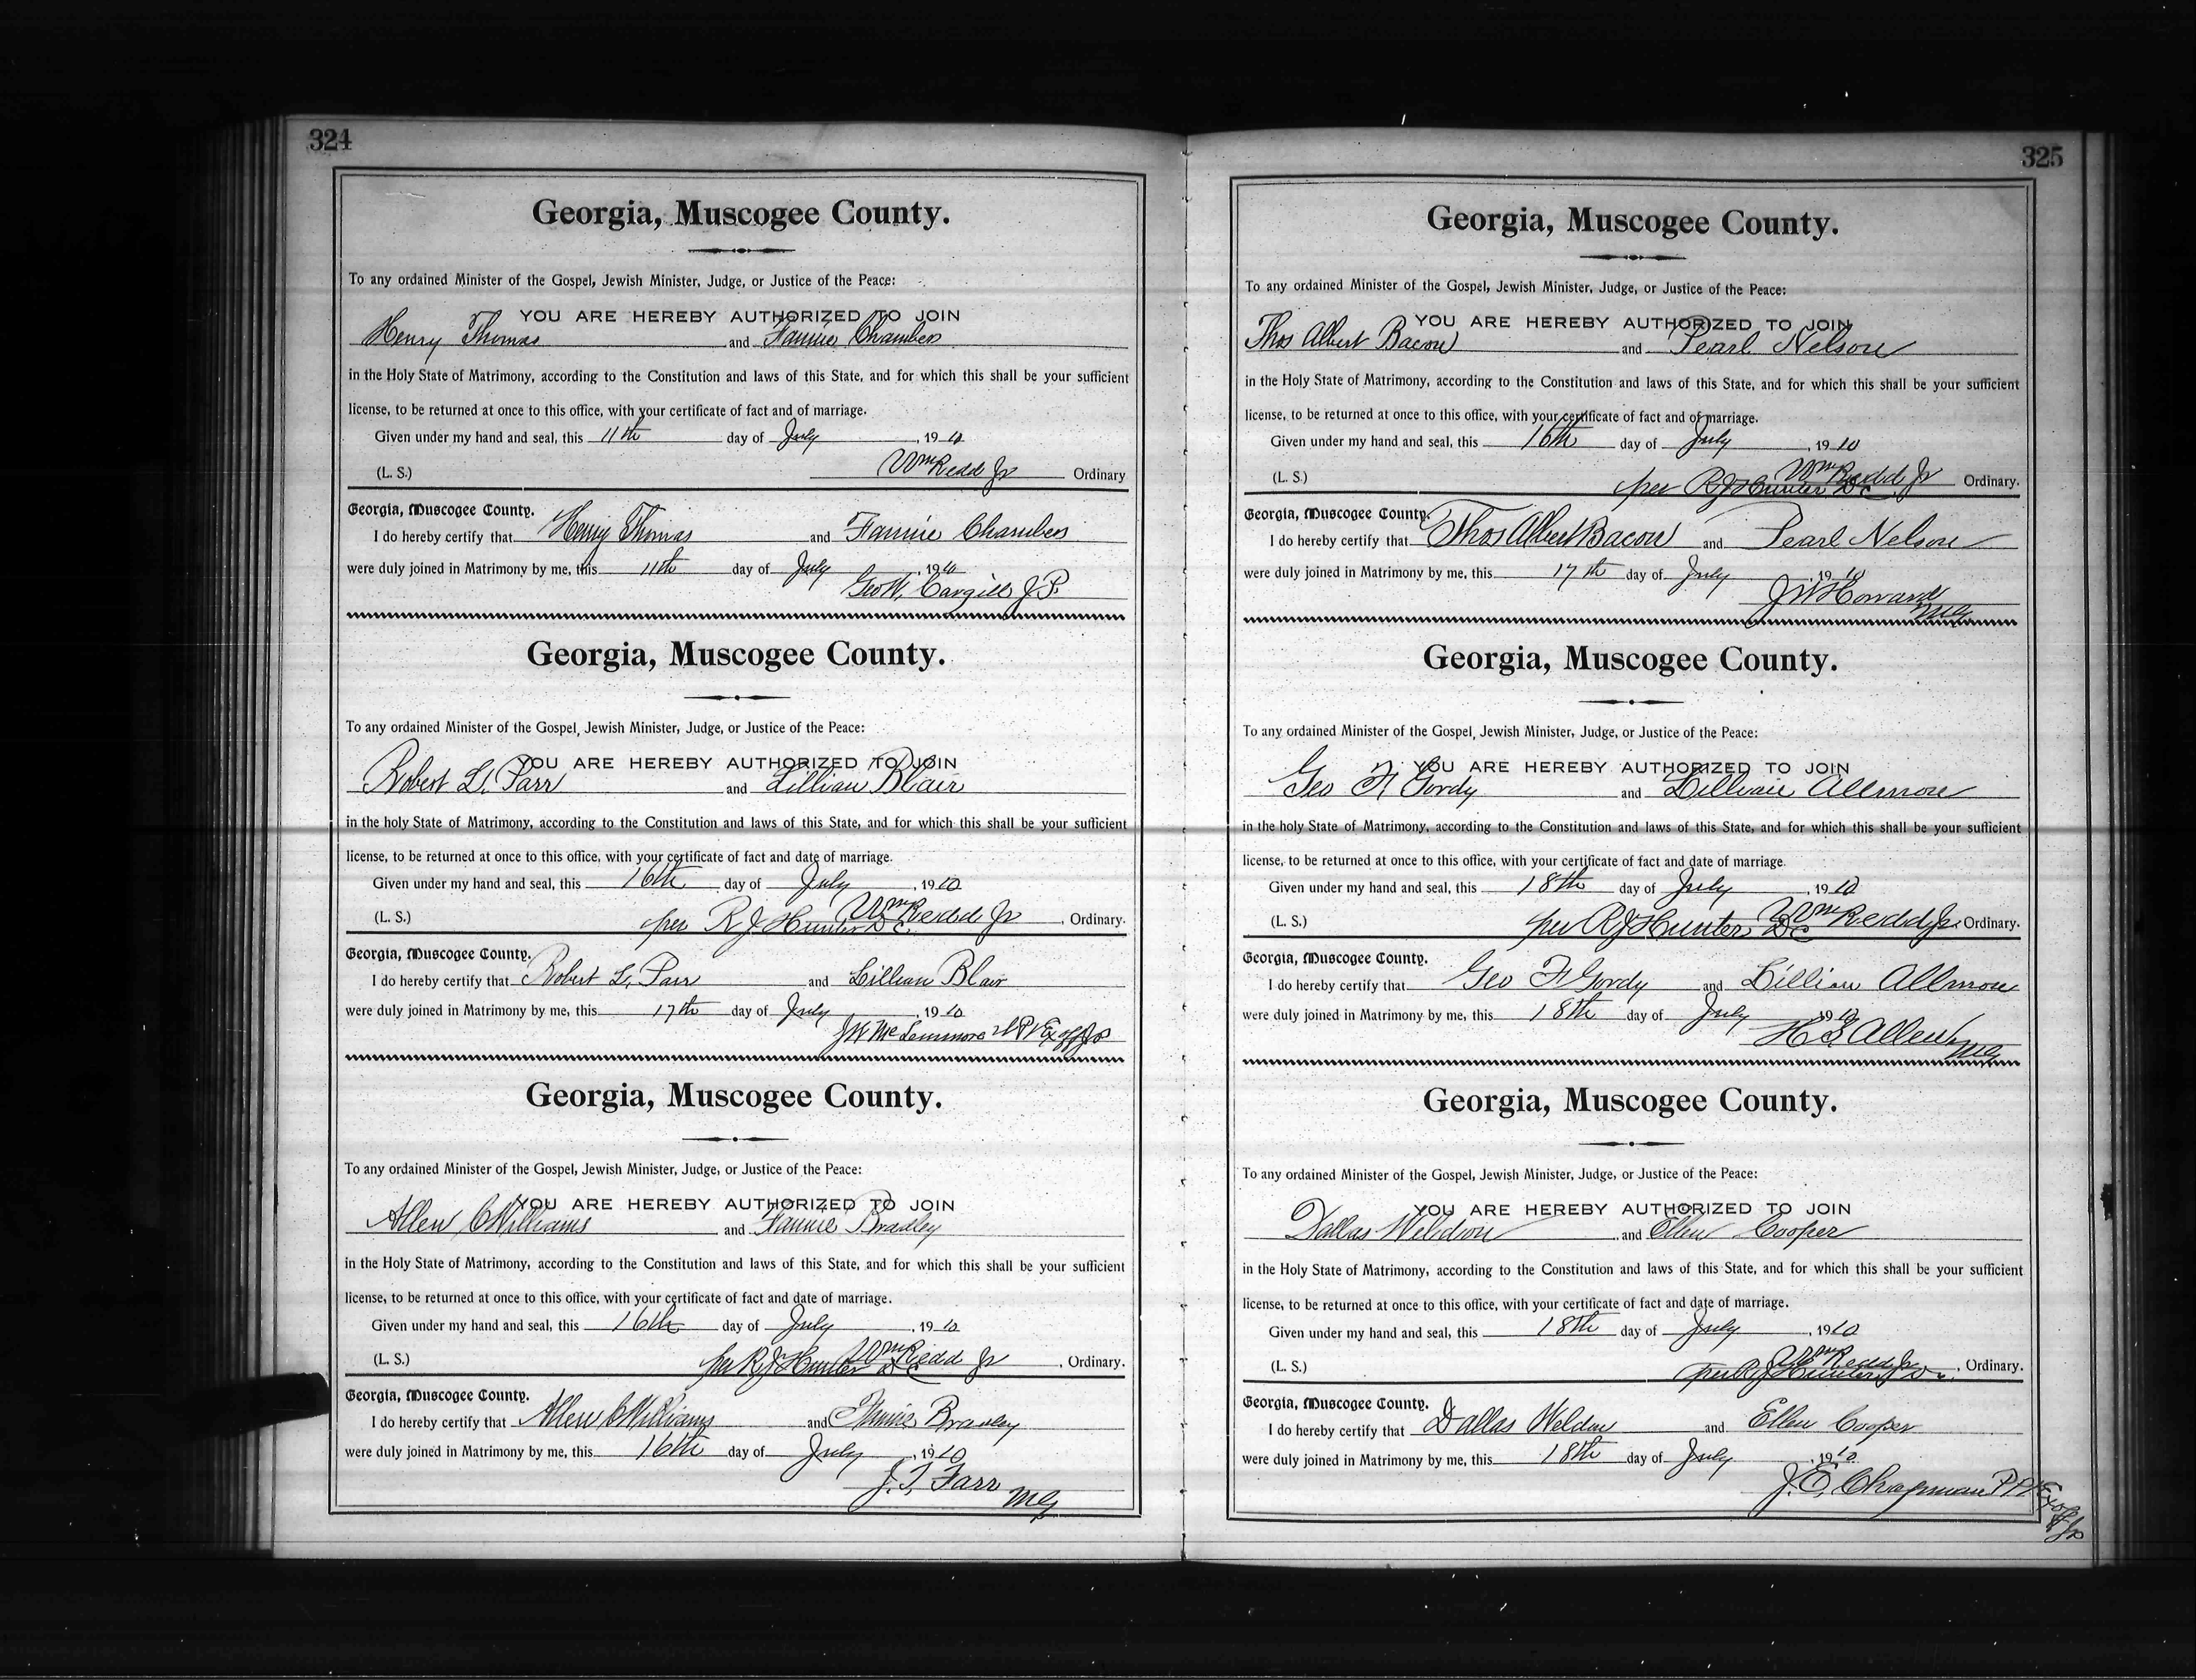 324
Georgia, Muscogee County.
To any ordained Minister of the Gospel, Jewish Minister, Judge, or Justice of the Peace:
YOU ARE HEREBY AUTHORIZED TO JOIN
Henry Thomas and Fannie Chambers
in the Holy State of Matrimony, according to the Constitution and laws of this State, and for which this shall be your sufficient
license, to be returned at once to this office, with your certificate of fact and of marriage.
Given under my hand and seal, this 11th day of July, 1910
(L. S.) Wm Redd Jr Ordinary
Georgia, Muscogee County.
I do hereby certify that Henry Thomas and Fannie Chambers
were duly joined in Matrimony by me, this 11th day of July, 1910
Geo W. Cargill J P.
Georgia, Muscogee County.
To any ordained Minister of the Gospel, Jewish Minister, Judge, or Justice of the Peace:
YOU ARE HEREBY AUTHORIZED TO JOIN
Robert L. Parr and Lillian Blair
in the holy State of Matrimony, according to the Constitution and laws of this State, and for which this shall be your sufficient
license, to be returned at once to this office, with your certificate of fact and date of marriage.
Given under my hand and seal, this 16th day of July, 1910
Wm Redd Jr
(L. S.) per R J Hunter D C, Ordinary.
Georgia, Muscogee County.
I do hereby certify that Robert L. Parr and Lillian Blair
were duly joined in Matrimony by me, this 17th day of July, 1910
J W McLemmore N P & Ex off J P
Georgia, Muscogee County.
To any ordained Minister of the Gospel, Jewish Minister, Judge, or Justice of the Peace:
YOU ARE HEREBY AUTHORIZED TO JOIN
Allen C Williams and Fannie Bradley
in the Holy State of Matrimony, according to the Constitution and laws of this State, and for which this shall be your sufficient
license, to be returned at once to this office, with your certificate of fact and date of marriage.
Given under my hand and seal, this 16th day of July, 1910
Wm Redd Jr
(L. S.) per R J Hunter D C, Ordinary.
Georgia, Muscogee County.
I do hereby certify that Allen C Williams and Fannie Bradley
were duly joined in Matrimony by me, this 16th day of July, 1910
J. T. Farr M G
325
Georgia, Muscogee County.
To any ordained Minister of the Gospel, Jewish Minister, Judge, or Justice of the Peace:
YOU ARE HEREBY AUTHORIZED TO JOIN
Thos Albert Bacon and Pearl Nelson
in the Holy State of Matrimony, according to the Constitution and laws of this State, and for which this shall be your sufficient
license, to be returned at once to this office, with your certificate of fact and of marriage.
Given under my hand and seal, this 16th day of July, 1910
Wm Redd Jr
(L. S.) per R J Hunter D C Ordinary.
Georgia, Muscogee County.
I do hereby certify that Thos Albert Bacon and Pearl Nelson
were duly joined in Matrimony by me, this 17th day of July, 1910
J W Howard M G
Georgia, Muscogee County.
To any ordained Minister of the Gospel, Jewish Minister, Judge, or Justice of the Peace:
YOU ARE HEREBY AUTHORIZED TO JOIN
Geo F Gordy and Lillian Allmon
in the holy State of Matrimony, according to the Constitution and laws of this State, and for which this shall be your sufficient
license, to be returned at once to this office, with your certificate of fact and date of marriage.
Given under my hand and seal, this 18th day of July, 1910
Wm Redd Jr
(L. S.) per R J Hunter D C Ordinary.
Georgia, Muscogee County.
I do hereby certify that Geo F Gordy and Lillian Allmon
were duly joined in Matrimony by me, this 18th day of July 1910
H S Allen M G
Georgia, Muscogee County.
To any ordained Minister of the Gospel, Jewish Minister, Judge, or Justice of the Peace:
YOU ARE HEREBY AUTHORIZED TO JOIN
Dallas Weldon and Ellen Cooper
in the Holy State of Matrimony, according to the Constitution and laws of this State, and for which this shall be your sufficient
license, to be returned at once to this office, with your certificate of fact and date of marriage.
Given under my hand and seal, this 18th day of July, 1910
Wm Redd Jr
(L. S.) per R J Hunter D C, Ordinary.
Georgia, Muscogee County.
I do hereby certify that Dallas Weldon and Ellen Cooper
were duly joined in Matrimony by me, this 18th day of July, 1910
J. E. Chapman